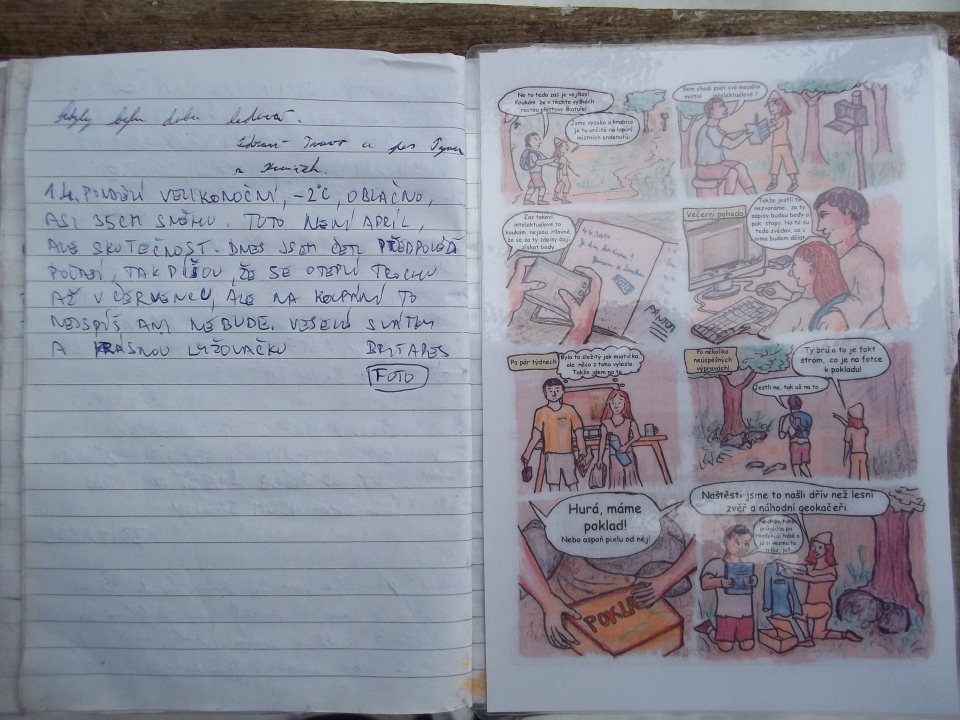 byla doba ledová.
a pes
1.4. PONDĚLÍ VELIKONOČNÍ, -2°C, OBLAČNO,
ASI 35CM SNĚHU. TOTO NENÍ APRÍL,
ALE SKUTEČNOST. DNES JSEM ČETL PŘEDPOVĚĎ
POČASÍ, TAK PÍŠOU, ŽE SE OTEPLÍ TROCHU
AŽ V ČERVENCU, ALE NA KOUPÁNÍ TO
NEJSPÍŠ ANI NEBUDE. VESELÉ SVÁTKY
A KRÁSNOU LYŽOVAČKU
FOTO
No to teda zas je vejšlap!
Koukám, že v těchto výškách
rostou plastový škatule!
Jsme vysoko a krabice
je tu určitě na lapání
místních endemitů.
Sem chodí psát své moudra
místní intelektuálové?
Zas takoví
intelektuálové to,
koukám, nejsou. Hlavně,
že se za ty zápisy dají
získat body.
Večerní pohoda
Takže jestli to
nezvoráme, za ty
zápisy budou body a
pak stopy. No to su
teda zvědav, co s
nima budem dělat.
Po pár týdnech
Bylo to složitý jak matička,
ale něco z toho vylezlo.
Takže jdem na to.
Po několika
neúspěšných
výpravách!
Jestli ne, tak už na to ...
Ty brďo to je fakt
strom, co je na fotce
k pokladu!
Hurá, máme
poklad!
Nebo aspoň pixlu od něj!
POKLA
Naštěstí jsme to našli dřív než lesní
zvěř a náhodní geokačeři.